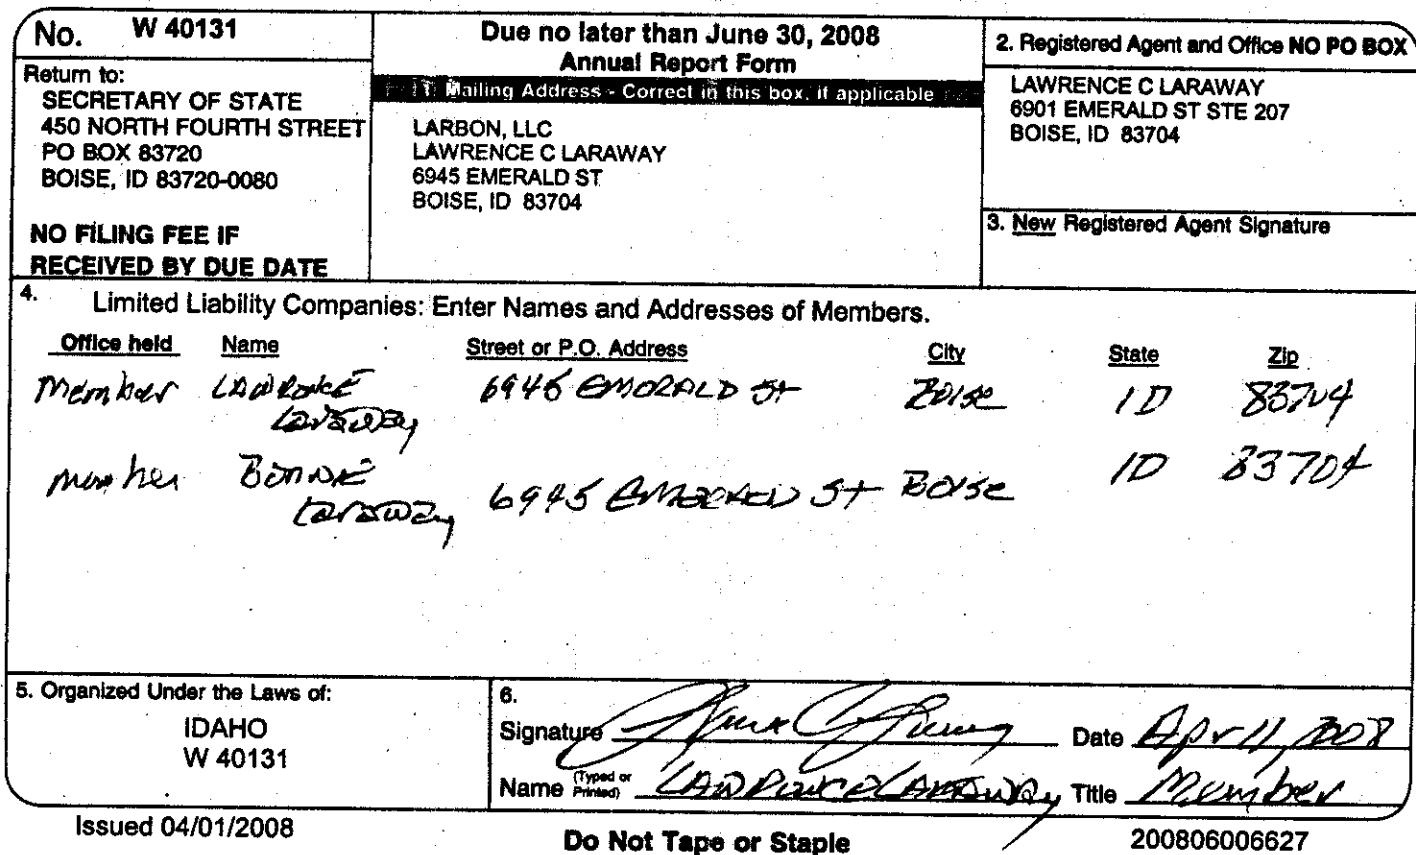 No. W 40131
Return to:
SECRETARY OF STATE
450 NORTH FOURTH STREET
PO BOX 83720
BOISE, ID 83720-0080
NO FILING FEE IF
RECEIVED BY DUE DATE
Due no later than June 30, 2008
Annual Report Form
1. Mailing Address - Correct in this box, if applicable
LARBON, LLC
LAWRENCE C LARAWAY
6945 EMERALD ST
BOISE, ID 83704
2. Registered Agent and Office NO PO BOX
LAWRENCE C LARAWAY
6901 EMERALD ST STE 207
BOISE, ID 83704
3. New Registered Agent Signature
4. Limited Liability Companies: Enter Names and Addresses of Members.
Office held Name Street or P.O. Address City State Zip
Member LAWRENCE 6945 EMERALD St Boise ID 83704
Laraway
Member BONNIE 6945 EMERALD St Boise ID 83704
Laraway
5. Organized Under the Laws of:
IDAHO
W 40131
6.
Signature Date Apr 11, 2008
Name (Typed or Printed) LAWRENCE LARAWAY Title Member
Issued 04/01/2008
Do Not Tape or Staple
200806006627